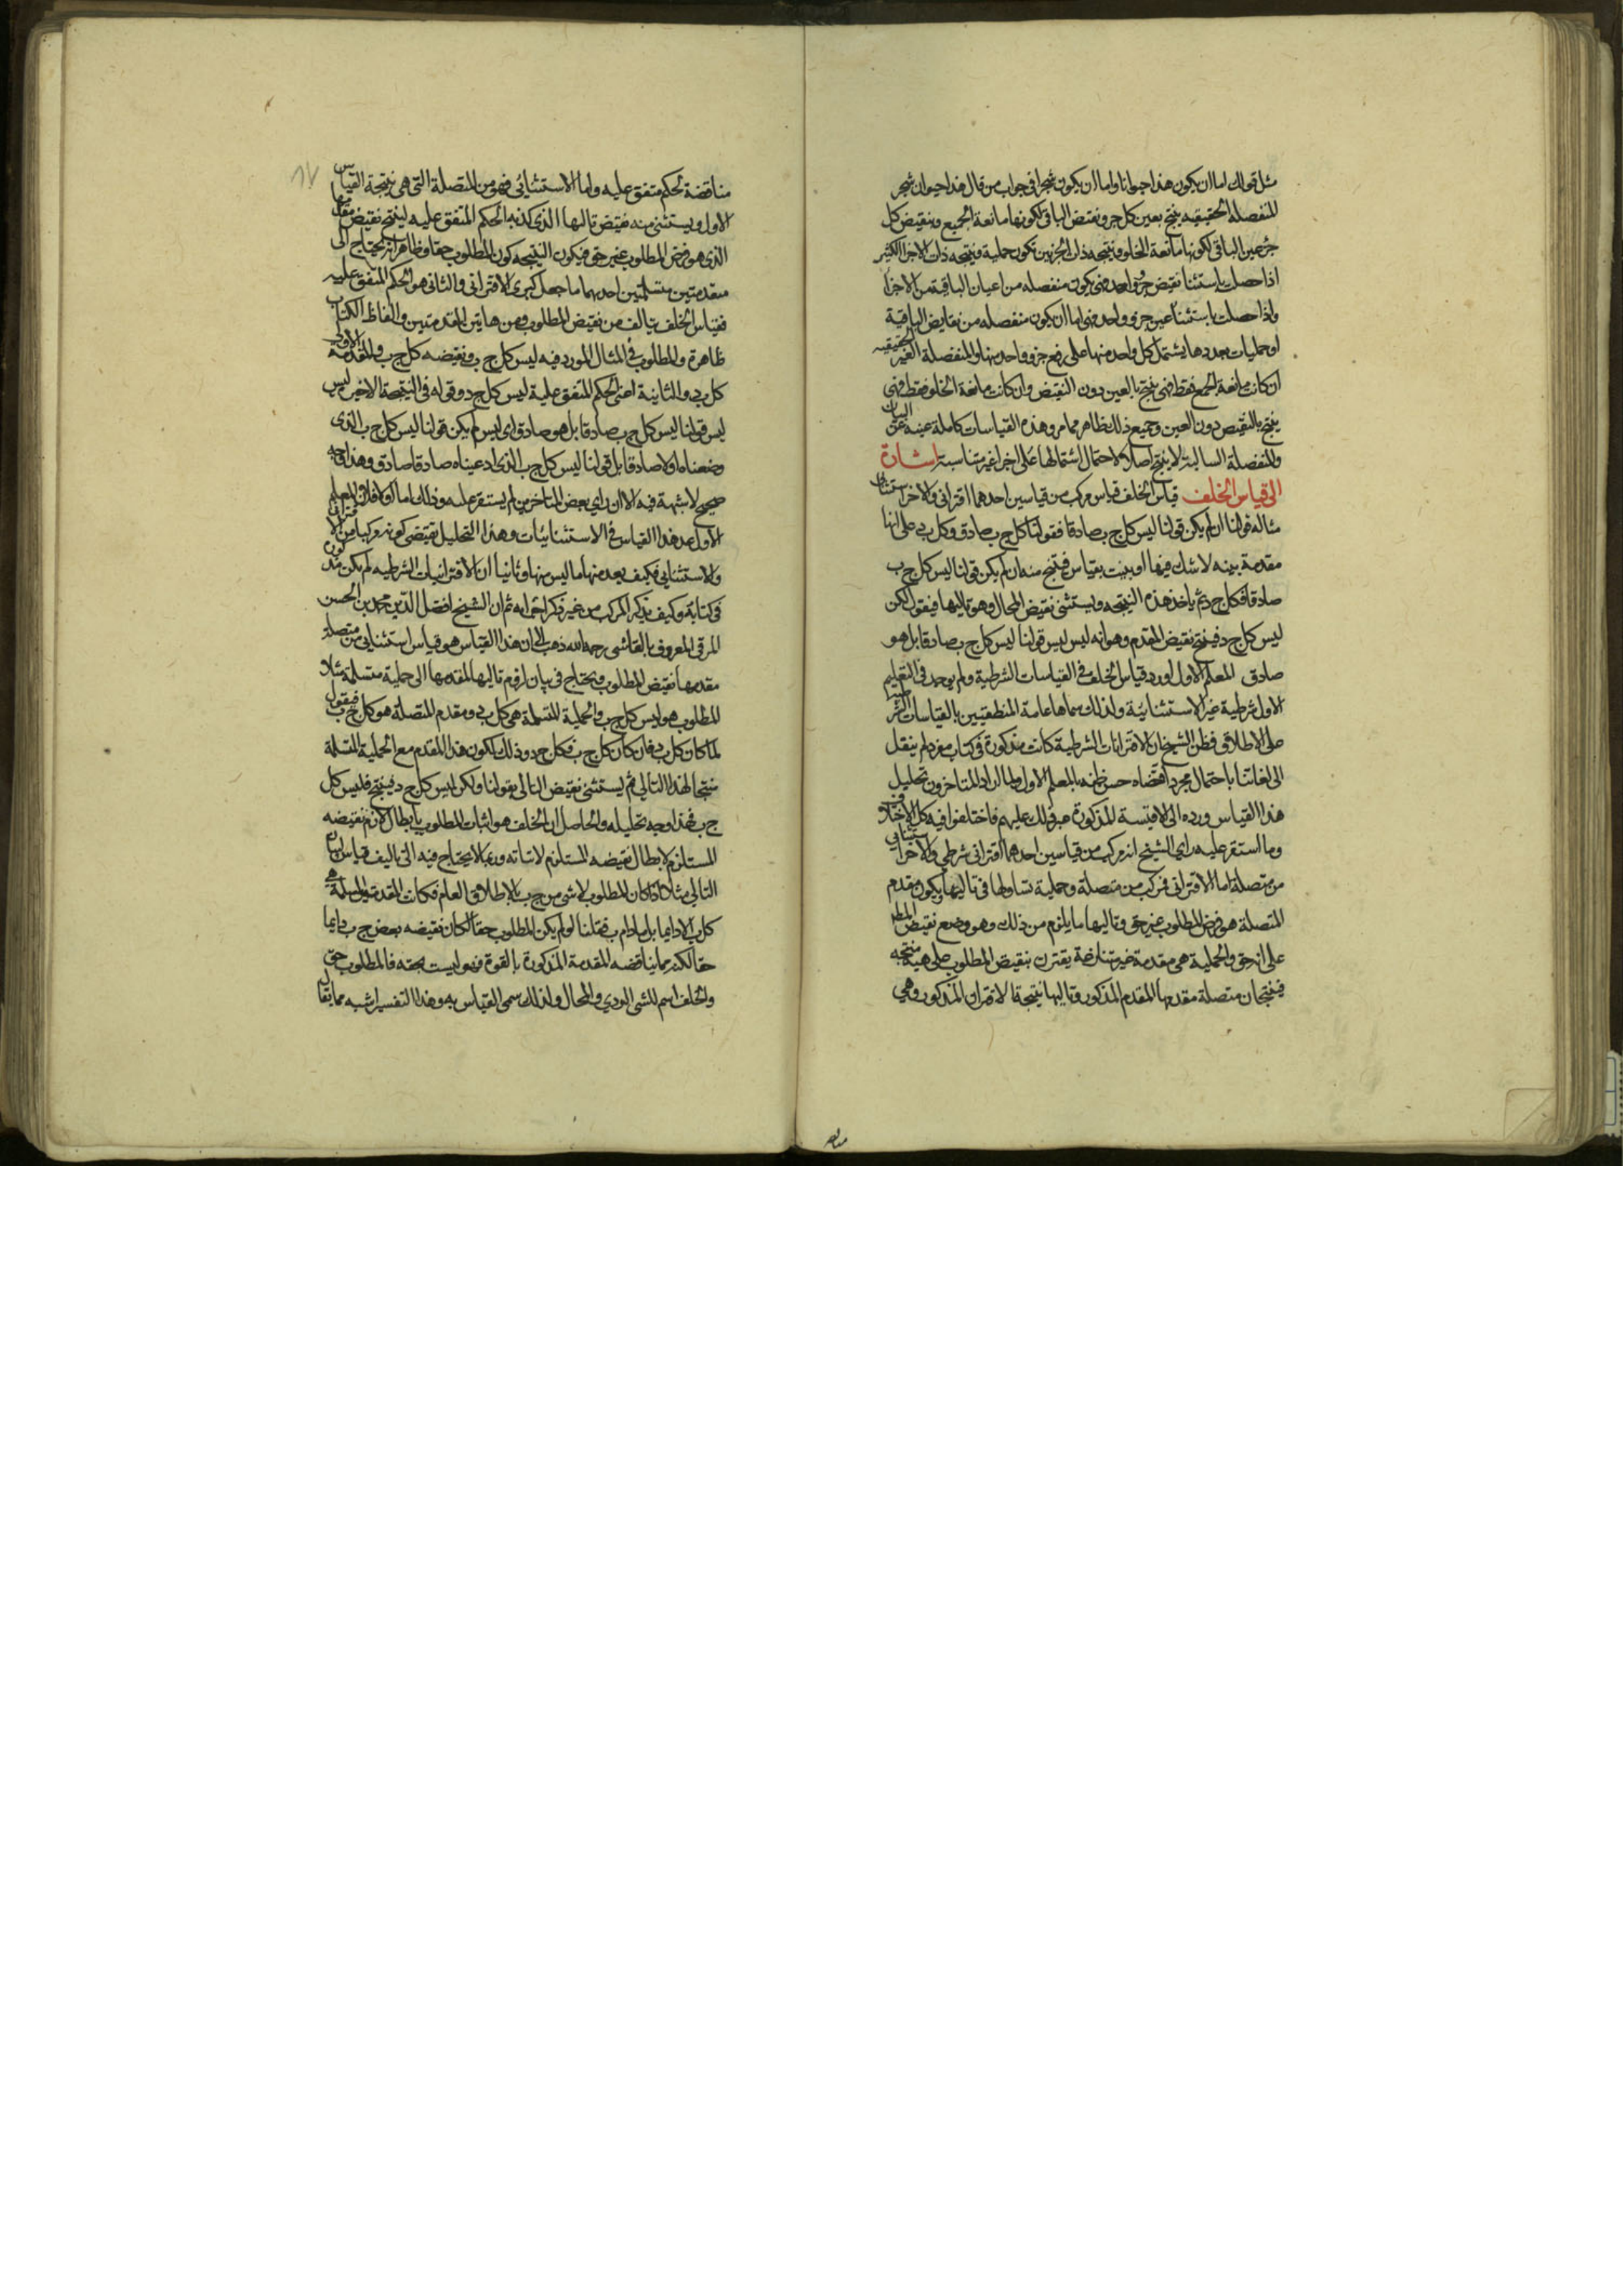 مثل قولك اما ان يكون هذا حيوانا واما ان يكون شجرا فى جواب من قال هذا حيوان شجر
المنفصلة الحقيقيه ينتج بعين كل جزو نقيض الباقى لكونها مانعة الجمع وبنقيض كل
جزء عين الباقى لكونها مانعة الخلو ونتيجه ذات الجزئين تكون حملية ونتيجه ذات الاجزا الكثير
اذا حصلت باستثنا نقيض جزو واحد فهى يكون منفصله من اعيان الباقية من الاجزا
واذا حصلت باستثنا عين جزو واحد فهى اما ان يكون منفصله من نقايض الباقية
او حمليات بعددها يشتمل كل واحد منها على رفع جزو واحد منها والمنفصلة الغير الحقيقيه
ان كانت مانعة الجمع فقط فهى ينتج بالعين دون النقيض وان كانت مانعة الخلو فقط فهى
ينتج بالنقيض دون العين وجميع ذلك ظاهر مما مر وهذه القياسات كاملة غنيه عن البيان
والمنفصلة السالبة لا ينتج اصلا لاحتمال اشتمالها على اجزا غير متناسبة اشارة
الى قياس الخلف قياس الخلف قياس مركب من قياسين احدهما اقترانى والاخر استثنائى
مثاله قولنا ان لم يكن قولنا ليس كل ج ب صادقا فقولنا كل ج ب صادق وكل ب د على انها
مقدمة بينه لا شك فيها او بينت بقياس فينتج منه ان لم يكن قولنا ليس كل ج ب
صادقا فكل ج د ثم ياخذ هذه النتيجه ويستثنى نقيض المحال وهو تاليها فيقول لكن
ليس كل ج د فينتج نقيض المقدم وهو انه ليس ليس قولنا ليس كل ج ب صادقا بل هو
صادق المعلم الاول اورد قياس الخلف فى القياسات الشرطية ولم يوجد فى التعليم
الاول شرطية غير الاستثنائية ولذلك سماها عامة المنطقيين بالقياسات الشرطية
على الاطلاق فظن الشيخ ان الاقترانات الشرطية كانت مذكورة فى كتاب مفرد لم ينقل
الى لغاتنا باحتمال مجرد اقتضاه حسن ظنه بالمعلم الاول ولما اراد المتاخرون تحليل
هذا القياس ورده الى الاقيسة المذكورة عسر ذلك عليهم فاختلفوا فيه كل الاختلاف
وما استقر عليه راى الشيخ انه مركب من قياسين احدهما اقترانى شرطى والاخر استثنايى
من متصلة اما الاقترانى فمركب من متصلة وحملية تشاركها فى تاليها ويكون مقدم
المتصلة هو فرض المطلوب غير حق وتاليها ما يلزم من ذلك وهو وضع نقيض المطلوب
على انه حق والحملية هى مقدمة غير متنازعة يقترن بنقيض المطلوب على هيئة منتجه
فينتجان متصلة مقدمها المقدم المذكور وتاليها نتيجة الاقتران المذكور وهى
مناقضة لحكم متفق عليه واما الاستثنائى فهو من المتصلة التى هى نتيجة القياس
الاول ويستثنى منه نقيض تاليها الذى كذبه الحكم المتفق عليه لينتج نقيض مقدمها
الذى هو فرض المطلوب غير حق فيكون النتيجه كون المطلوب حقا وظاهر انه يحتاج الى
مقدمتين متسلمتين احديهما ما جعل كبرى الاقترانى والثانى هو الحكم المتفق عليه
فقياس الخلف يتالف من نقيض المطلوب ومن هاتين المقدمتين والفاظ الكتاب
ظاهرة والمطلوب فى المثال المورد فيه ليس كل ج ب ونقيضه كل ج ب والمقدمة الاولى
كل ب د والثانية اعنى الحكم المتفق عليه ليس كل ج د وقوله فى النتيجة الاخير ليس
ليس قولنا ليس كل ج ب صادقا بل هو صادق اى ليس لم يكن قولنا ليس كل ج ب الذى
وضعناه اولا صادقا بل قولنا ليس كل ج ب الذى ادعيناه صادقا صادق وهذا وجه
صحيح لا شبهة فيه الا ان راى بعض المتاخرين لم يستقر عليه وذلك اما اولا فلان المعلم
الاول عد هذا القياس فى الاستثنائيات وهذا التحليل يقتضى كونه مركبا من الاقترانى
والاستثنايى فكيف يعد منها ما ليس منها وثانيا ان الاقترانيات الشرطيه لم يكن مذكورة
فى كتابه وكيف يذكر المركب من غير ذكر اجزايه ثم ان الشيخ افضل الدين محمد بن الحسن
المرقى المعروف بالقاشى رحمه الله ذهب الى ان هذا القياس هو قياس استثنايى من متصلة
مقدمها نقيض المطلوب ويحتاج فى بيان لزوم تاليها لمقدمها الى حملية متسلمة مثلا
المطلوب هو ليس كل ج ب والحملية المتسلمة هى كل ب د ومقدم المتصلة هو كل ج ب فيقول
لما كان كل ب د فان كان كل ج ب فكل ج د وذلك لكون هذا المقدم مع الحملية المتسلمة
منتجا لهذا التالى ثم يستثنى نقيض التالى بقولنا ولكن ليس كل ج د فينتج فليس كل
ج ب فهذا وجه تحليله والحاصل ان الخلف هو اثبات المطلوب بابطال لازم نقيضه
المستلزم لابطال نقيضه المستلزم لاثباته وربما لا يحتاج فيه الى تاليف قياس لبيان
التالى مثلا اذا كان المطلوب لا شى من ج ب بالاطلاق العام وكانت المقدمة المسلمة هى
كل ب لا دايما بل ما دام ب فقلنا لو لم يكن المطلوب حقا لكان نقيضه بعض ج ب دايما
حقا لكنه مما يناقضه المقدمة المذكورة بالقوة فهو ليست بحقه فالمطلوب حق
والخلف اسم للشى الردي والمحال ولذلك سمى القياس به وهذا التفسير اشبه مما يقال